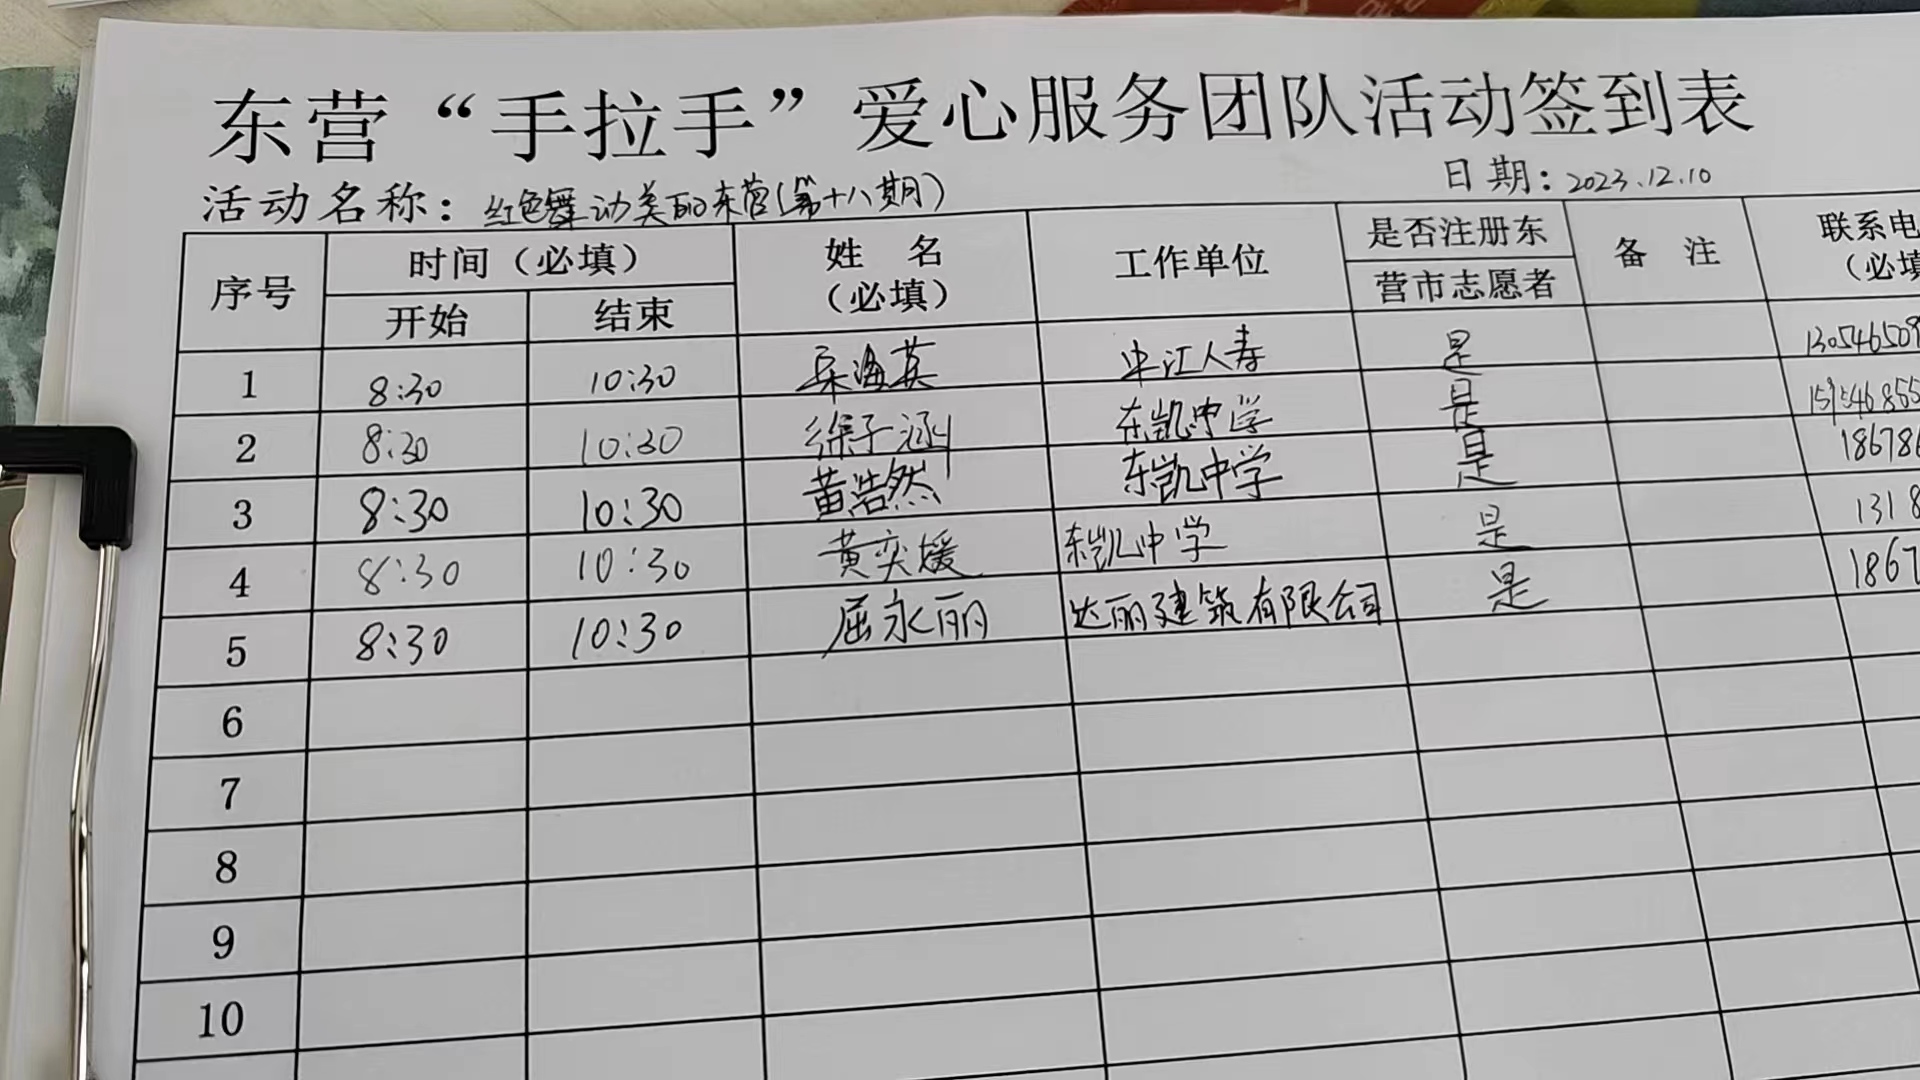 东营“手拉手”爱心服务团队活动签到表
活动名称：红色舞动美丽东营(第十八期) 日期：2023.12.10
序号 时间（必填） 姓名（必填） 工作单位 是否注册东营市志愿者 备注 联系电 （必填
开始 结束
1 8:30 10:30 海英 人寿 是
2 8:30 10:30 徐子涵 东凯中学 是
3 8:30 10:30 黄浩然 东凯中学 是 18678
4 8:30 10:30 黄奕媛 东凯中学 是 1318
5 8:30 10:30 屈永丽 达丽建筑有限公司 是 1867
6
7
8
9
10